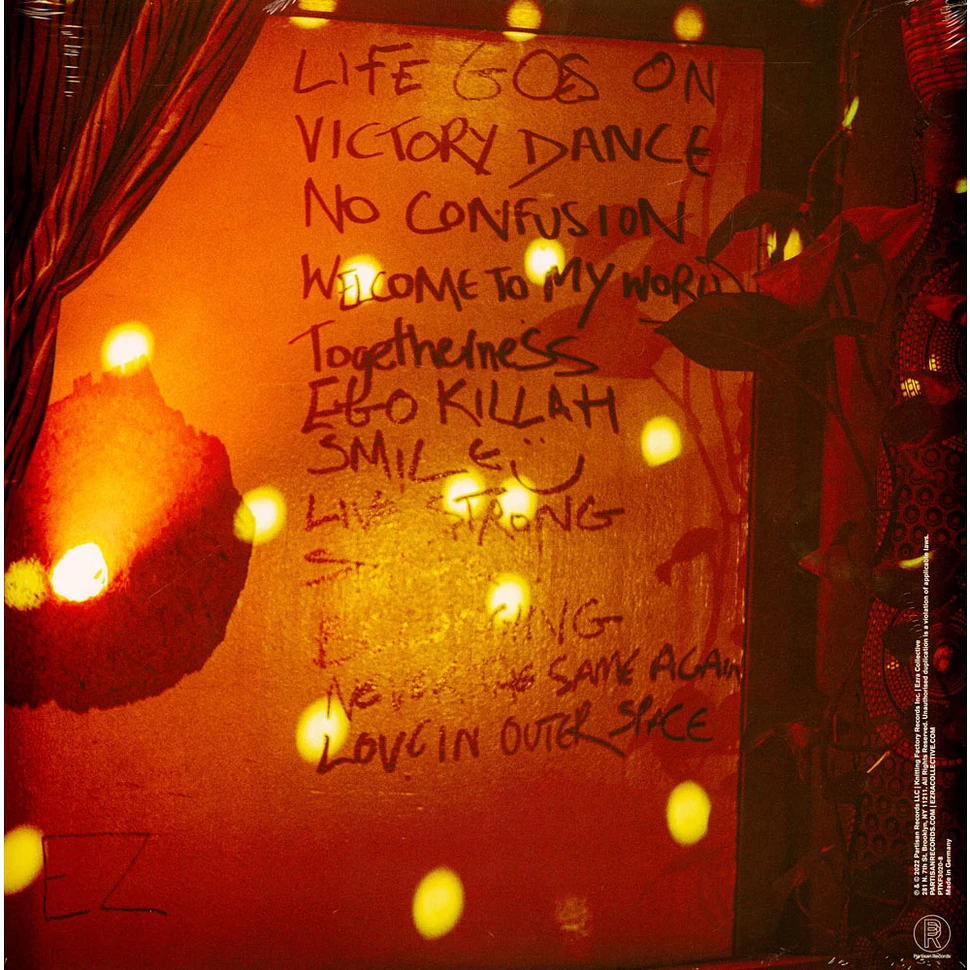 LIFE GOES ON
VICTORY DANCE
NO CONFUSION
WELCOME TO MY WORLD
Togetherness
EGO KILLAH
SMILE :)
LIVE STRONG
NEVER THE SAME AGAIN
LOVE IN OUTER SPACE
EZ
℗ & © 2022 Partisan Records LLC | Knitting Factory Records Inc. | Ezra Collective
281 N. 7th St. Brooklyn, NY 11211. All Rights Reserved. Unauthorised duplication is a violation of applicable laws.
PARTISANRECORDS.COM | EZRACOLLECTIVE.COM
PTKF3020-8
Made in Germany
Partisan Records